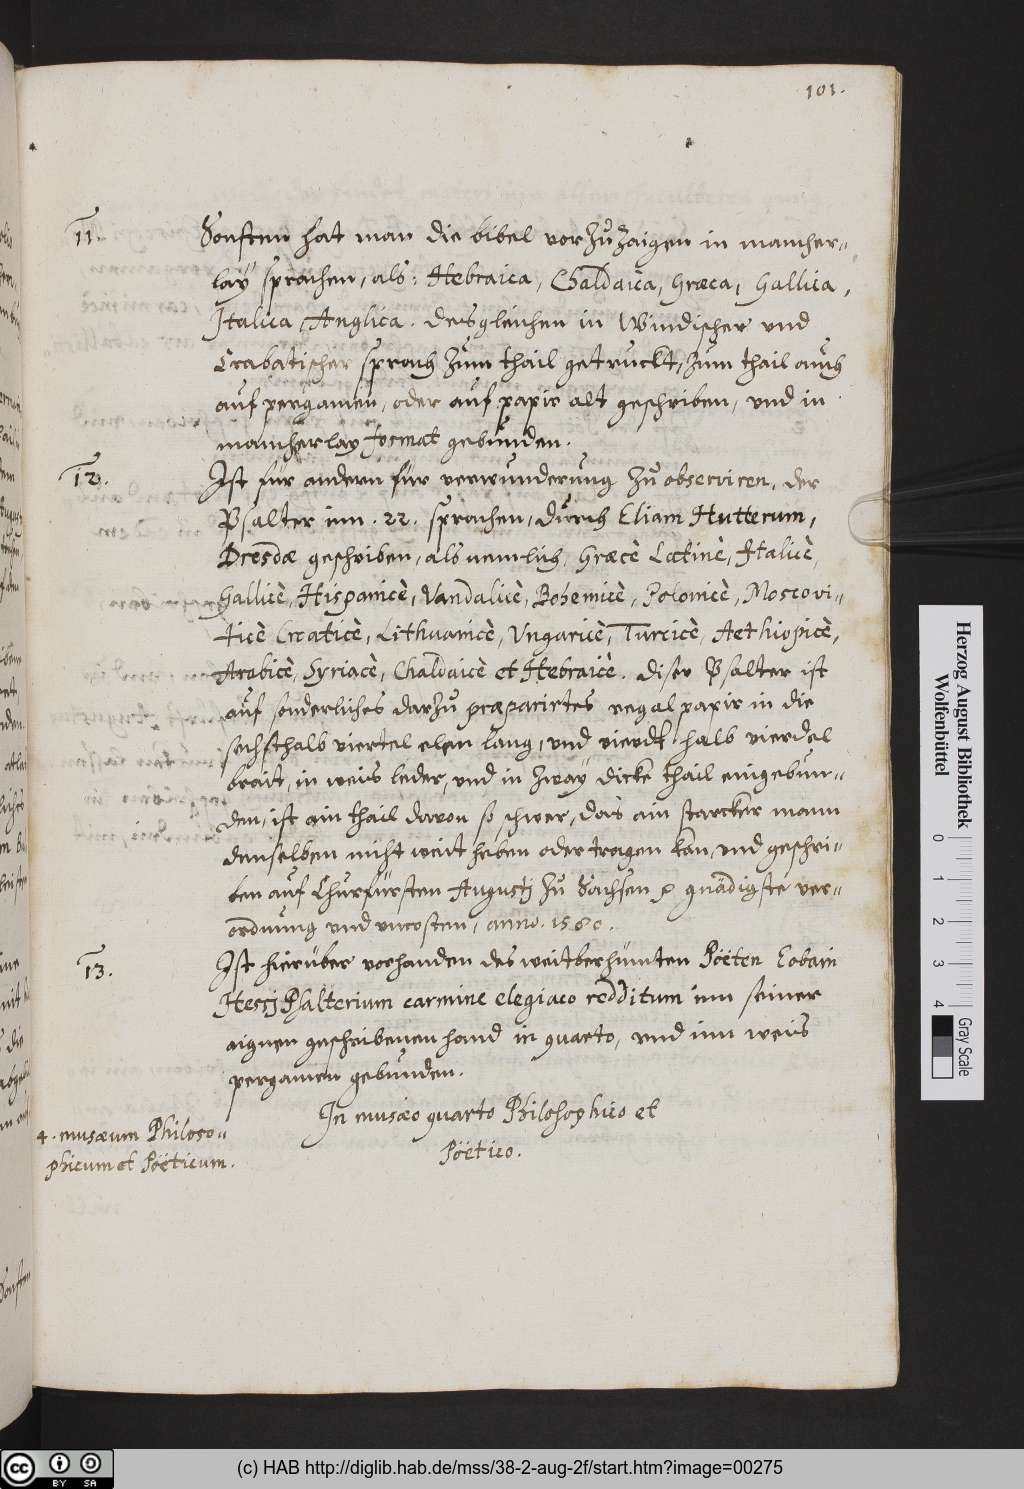 101.
11. Sonsten hat man die bibel vorzuzaigen in mancher-
lay sprachen, als: Hebraica, Chaldaica, Græca, Gallica,
Italica, Anglica. desgleichen in Windischer und
Crabatischer sprach zum thail getruckt, zum thail auch
auf pergamen, oder auf papir alt geschriben, und in
mancherlay format gebunden.
12. Ist für andern für verwunderung zu observiren, der
Psalter inn .22. sprachen, durch Eliam Hutterum,
Dresdæ geschriben, als nemlich, Græcè Latinè, Italicè,
Gallicè, Hispanicè, Vandalicè, Bohemicè, Polonicè, Moscovi-
ticè Croaticè, Lithuanicè, Vngaricè, Turcicè, Aethiopicè,
Arabicè, Syriacè, Chaldaicè et Hebraicè. diser Psalter ist
auf sonderliches darzu præparirtes regal papir in die
sechsthalb viertel elen lang, und vierdthalb vierdel
brait, in weis leder, und in zway dicke thail eingebun-
den, ist ain thail davon so schwer, das ain starcker mann
denselben nicht weit heben oder tragen kan, und geschri-
ben auf Churfürsten Augustj zu Sachsen gnädigste ver-
ordnung und uncosten, anno. 1580.
13. Ist hierüber vorhanden des weitberhümten Poëten Eobani
Hessj Psalterium carmine elegiaco redditum inn seiner
aignen geschribenen hand in quarto, und inn weis
pergamen gebunden.
In musæo quarto Philosophico et
Poëtico.
4. musæum Philoso-
phicum et Poëticum.
Herzog August Bibliothek
Wolfenbüttel
0 1 2 3 4
Gray Scale
cc BY SA
(c) HAB http://diglib.hab.de/mss/38-2-aug-2f/start.htm?image=00275